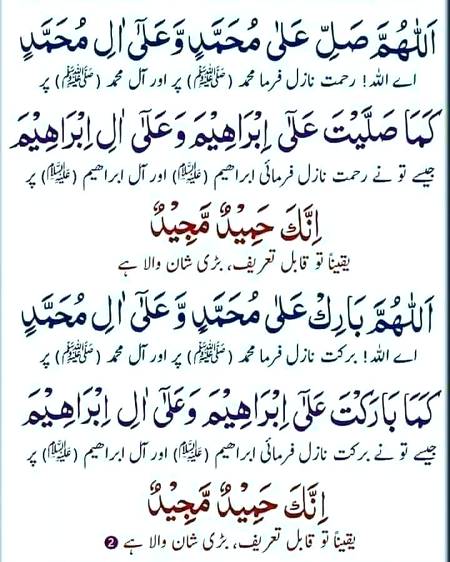 اَللّٰهُمَّ صَلِّ عَلٰى مُحَمَّدٍ وَّعَلٰٓى اٰلِ مُحَمَّدٍ
اے اللہ! رحمت نازل فرما محمد (ﷺ) پر اور آل محمد (ﷺ) پر
كَمَا صَلَّيْتَ عَلٰٓى اِبْرَاهِيْمَ وَعَلٰٓى اٰلِ اِبْرَاهِيْمَ
جیسے تو نے رحمت نازل فرمائی ابراھیم (علیہ السلام) پر اور آل ابراھیم (علیہ السلام) پر
اِنَّكَ حَمِيْدٌ مَّجِيْدٌ
یقیناً تو قابل تعریف، بڑی شان والا ہے
اَللّٰهُمَّ بَارِكْ عَلٰى مُحَمَّدٍ وَّ عَلٰٓى اٰلِ مُحَمَّدٍ
اے اللہ! برکت نازل فرما محمد (ﷺ) پر اور آل محمد (ﷺ) پر
كَمَا بَارَكْتَ عَلٰٓى اِبْرَاهِيْمَ وَعَلٰٓى اٰلِ اِبْرَاهِيْمَ
جیسے تو نے برکت نازل فرمائی ابراھیم (علیہ السلام) پر اور آل ابراھیم (علیہ السلام) پر
اِنَّكَ حَمِيْدٌ مَّجِيْدٌ
یقیناً تو قابل تعریف، بڑی شان والا ہے ❷